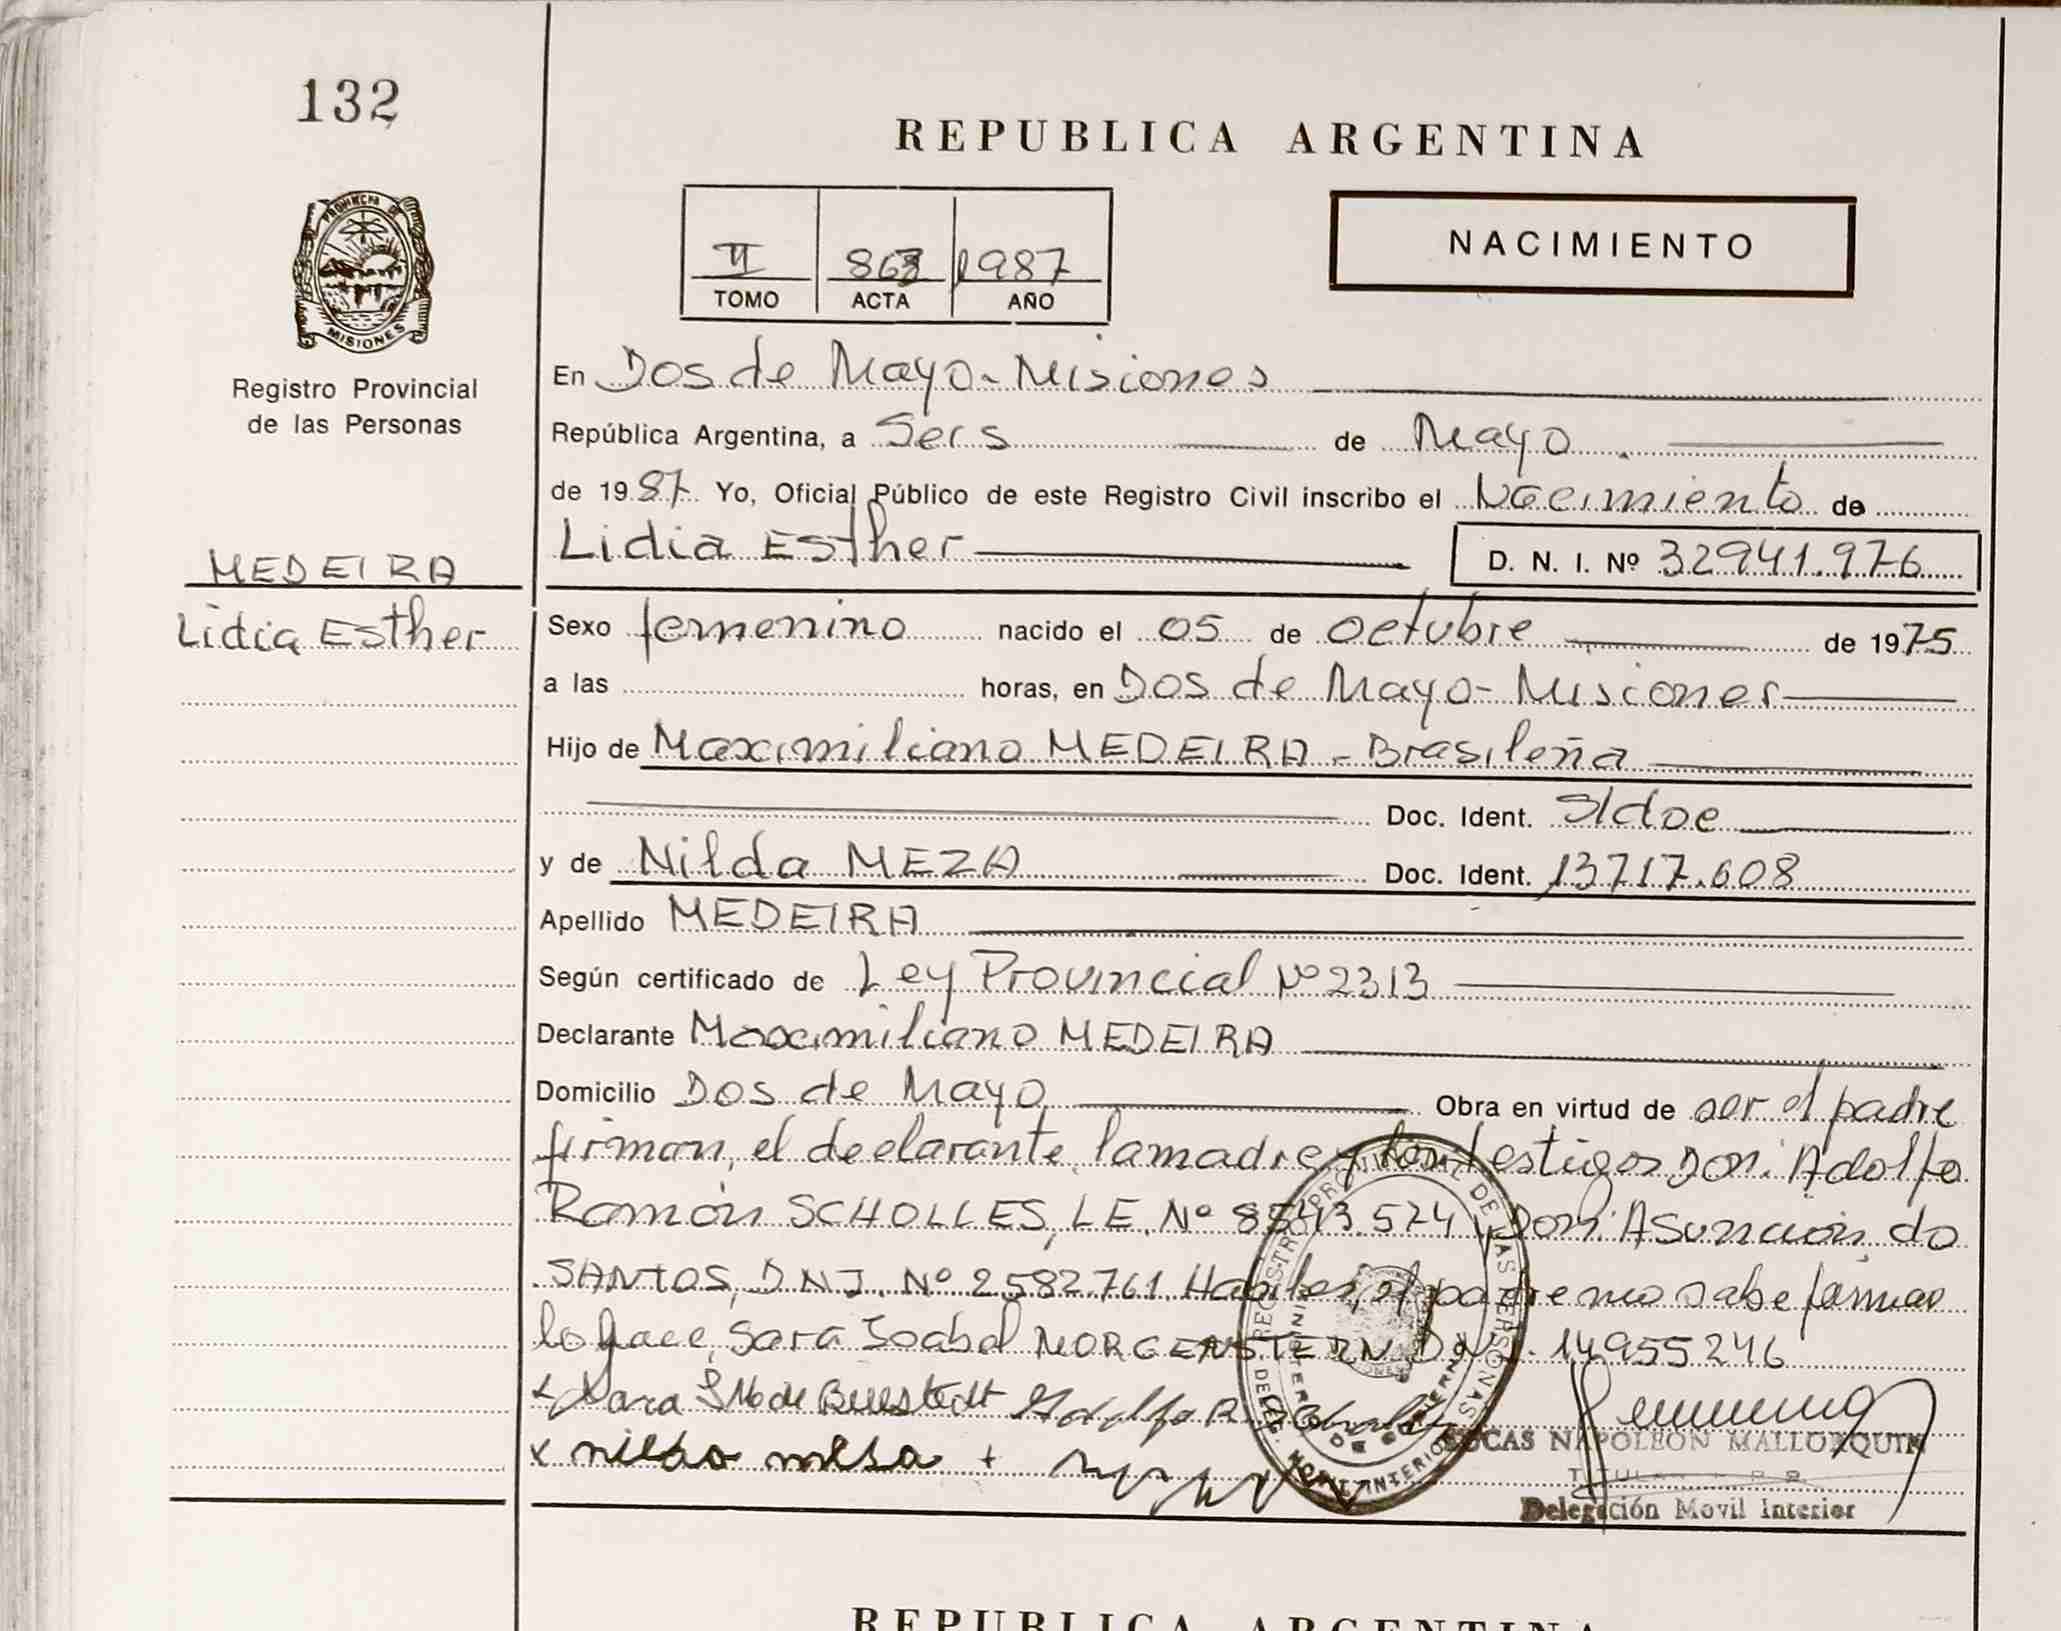 132
REPUBLICA ARGENTINA
PROVINCIA DE
MISIONES
Registro Provincial
de las Personas
II
TOMO
ACTA
1987
AÑO
NACIMIENTO
En Dos de Mayo - Misiones
República Argentina, a Seis de Mayo
de 1987 Yo, Oficial Público de este Registro Civil inscribo el Nacimiento de
Lidia Esther
D. N. I. Nº 32941.976
MEDEIRA
Lidia Esther
Sexo femenino nacido el 05 de octubre de 1975
a las horas, en Dos de Mayo - Misiones
Hijo de Maximiliano MEDEIRA - Brasileña
Doc. Ident. S/doe
y de Nilda MEZA Doc. Ident. 13717.608
Apellido MEDEIRA
Según certificado de Ley Provincial Nº 2313
Declarante Maximiliano MEDEIRA
Domicilio Dos de Mayo Obra en virtud de ser el padre
firman, el declarante, la madre y los testigos Don: Adolfo
Ramón SCHOLLES, L.E. Nº 8543.574 y Don: Asunción do
SANTOS, D.N.I. Nº 2582.761 Habiles, el padre no sabe firmar
lo hace, Sara Isabel MORGENSTERN D.N.I. 14955246
x Sara
Adolfo R.
x nilda mesa +
REGISTRO PROVINCIAL DE LAS PERSONAS
DELEG. MOVIL INTERIOR
LUCAS NAPOLEON MALLORQUIN
TITULAR
Delegación Movil Interior
REPUBLICA ARGENTINA